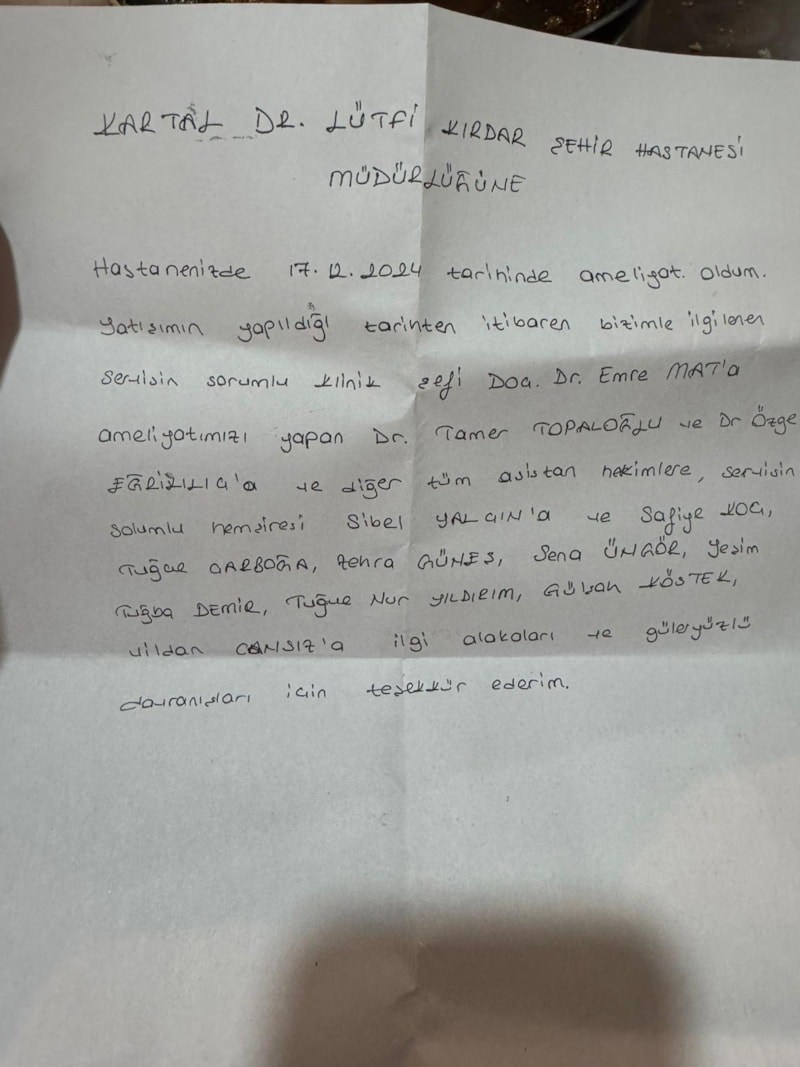 KARTAL DR. LÜTFİ KIRDAR ŞEHİR HASTANESİ
MÜDÜRLÜĞÜNE
Hastanenizde 17.12.2024 tarihinde ameliyat oldum.
Yatışımın yapıldığı tarihten itibaren bizimle ilgilenen
servisin sorumlu klinik şefi Doç. Dr. Emre MAT'a
ameliyatımızı yapan Dr. Tamer TOPALOĞLU ve Dr Özge
EĞRİKILIÇ'a ve diğer tüm asistan hekimlere, servisin
solumlu hemşiresi Sibel YALÇIN'a ve Safiye KOÇ,
Tuğçe DARBOĞA, Zehra GÜNEŞ, Sena ÜNGÖR, Yeşim
Tuğba DEMİR, Tuğçe Nur YILDIRIM, KÖSTEK,
Vildan CANSIZ'a ilgi alakaları ve güleryüzlü
davranışları için teşekkür ederim.